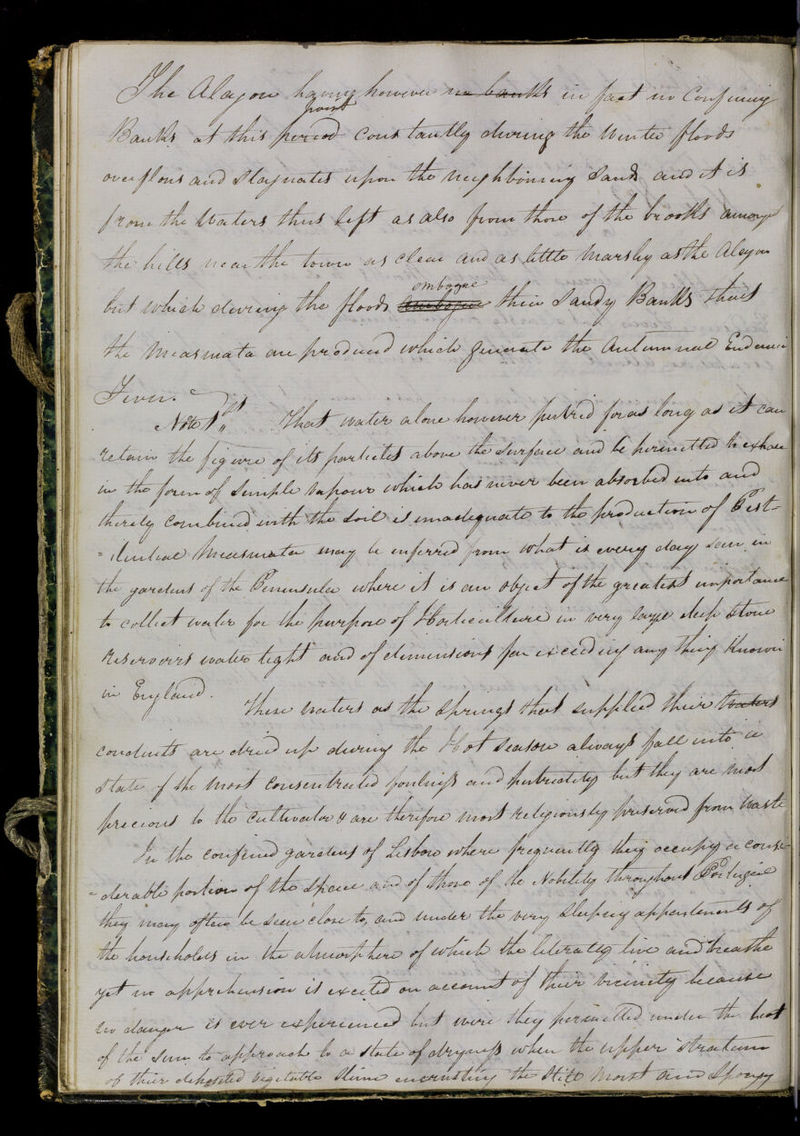 The Alagon having however no banks in fact no Confining
point
Banks at this period constantly during the Winter floods
overflows and stagnates upon the neighbouring Sands and it is
from the Waters thus left as also from those of the brooks amongst
the hills near the town as clear and as little Marshy as the Alagon
embogue
but which during the floods their Sandy Banks that
the Miasmata are produced which generate the Autumnal Endemic
Fever.
Note 1st That water alone however putrid for as long as it can
retain the figure of its particles above the Surface and be permitted to exhale
in the form of Simple vapour which has never been absorbed into and
thereby combined with the Soil is inadequate to the production of Pest-
=ilential Miasmata may be inferred from what is every day seen in
the gardens of the Peninsula where it is an object of the greatest importance
to collect water for the purpose of Horticulture in very large deep stone
reservoirs water tight and of dimensions far exceeding any thing Known
in England.
These waters as the Springs that supplied their waters
conduits are dried up during the Hot Season always fall into a
state of the most consentrated foulness and putridity but they are most
precious to the Cultivator & are therefore most religiously preserved from waste
In the confined gardens of Lisbon where frequently they occupy a consi-
=derable portion of the Space and of those of the Nobility throughout Portugal
they may often be seen close to, and under the very Sleeping appartments of
the households in the atmosphere of which the literally live and breathe
yet no apprehension is excited on account of their vicinity because
no danger is ever experienced but were they permitted under the heat
of the Sun to approach to a state of dryness when the upper Stratum
of their deposited vegetable slime encrusting the still Moist and Spongy